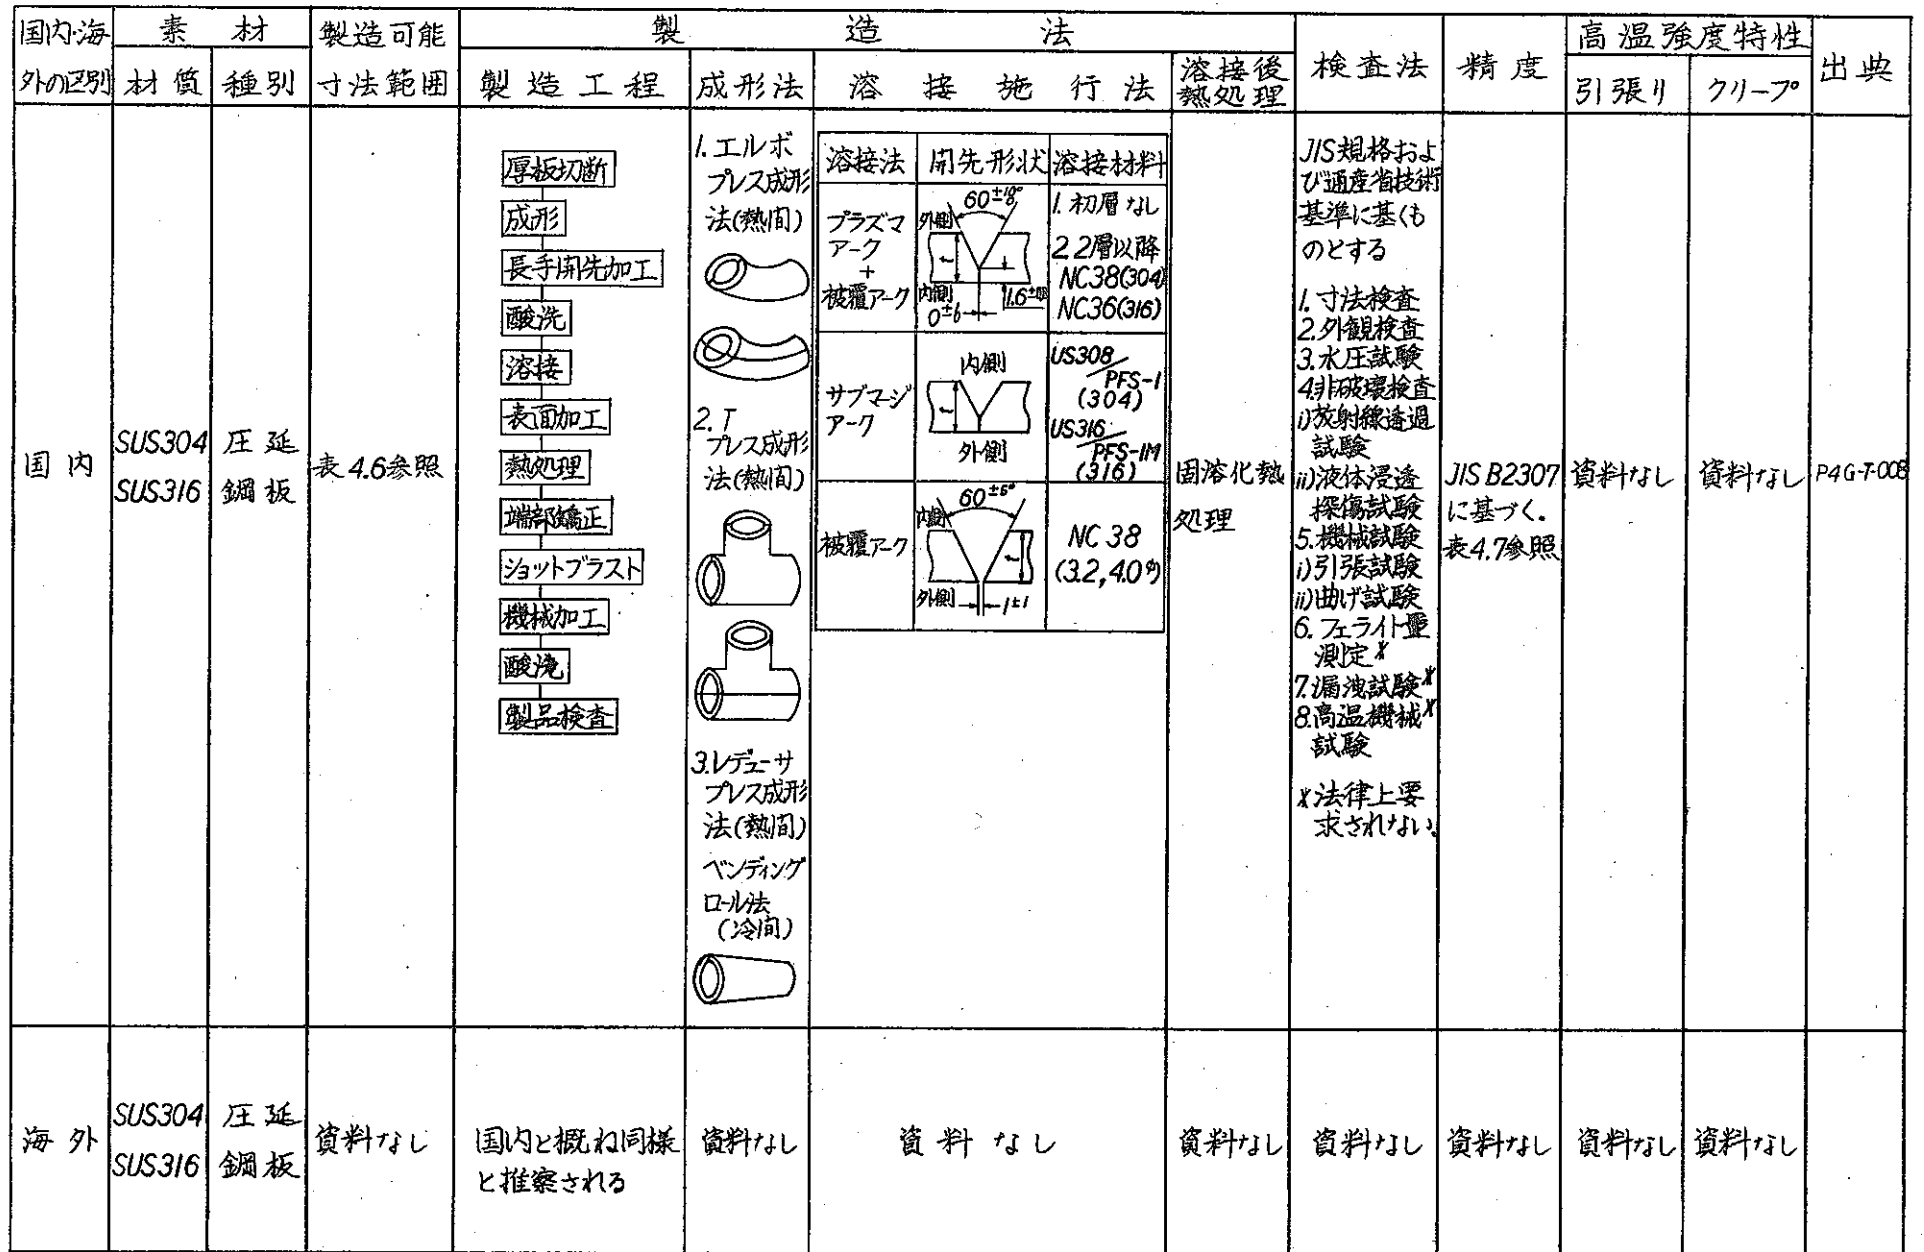 国内・海
外の区別
素材
材質
種別
製造可能
寸法範囲
製造法
製造工程
成形法
溶接施行法
溶接後
熱処理
検査法
精度
高温強度特性
引張り
クリープ
出典
国内
SUS304
SUS316
圧延
鋼板
表4.6参照
厚板切断
成形
長手開先加工
酸洗
溶接
表面加工
熱処理
端部矯正
ショットブラスト
機械加工
酸洗
製品検査
1.エルボ
プレス成形
法(熱間)
2.T
プレス成形
法(熱間)
3.レデューサ
プレス成形
法(熱間)
ベンディング
ロール法
(冷間)
溶接法
開先形状
溶接材料
プラズマ
アーク
+
被覆アーク
60±10°
外側
t
内側
0±6
1.初層なし
2.2層以降
NC38(304)
NC36(316)
サブマージ
アーク
内側
t
外側
US308/
PFS-1
(304)
US316/
PFS-1M
(316)
被覆アーク
60±5°
内側
t
外側
1±1
NC38
(3.2,4.0φ)
固溶化熱
処理
JIS規格およ
び通産省技術
基準に基くも
のとする
1.寸法検査
2.外観検査
3.水圧試験
4.非破壊検査
i)放射線透過
試験
ii)液体浸透
探傷試験
5.機械試験
i)引張試験
ii)曲げ試験
6.フェライト量
測定*
7.漏洩試験*
8.高温機械*
試験
*法律上要
求されない。
JIS B2307
に基づく.
表4.7参照
資料なし
資料なし
P4G-T-008
海外
SUS304
SUS316
圧延
鋼板
資料なし
国内と概ね同様
と推察される
資料なし
資料なし
資料なし
資料なし
資料なし
資料なし
資料なし